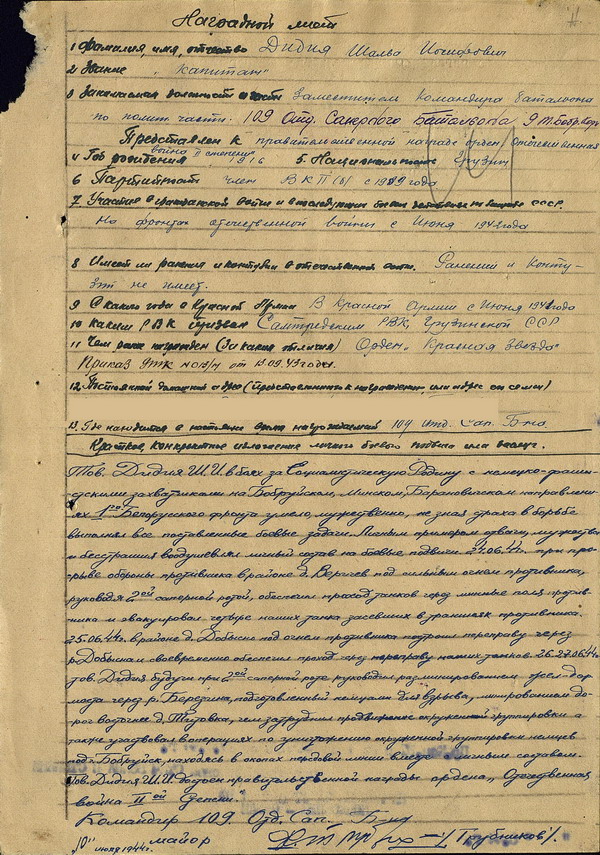 Наградной лист
1 Фамилия, имя, отчество Дидия Шалва Иосифович
2 Звание „Капитан"
3 Занимаемая должность и часть Заместитель Командира батальона
по полит. части. 109 Отд. Саперного батальона 9 Т.М. Бобр. Кор.
Представлен к правительственной награде орден „Отечественная
война II степени"
4 Год рождения 1916 5. Национальность Грузин
6 Партийность член ВКП(б) с 1939 года
7 Участие в гражданской войне и в последующих боевых действиях по защите СССР.
На фронтах отечественной войны с Июня 1942 года
8 Имеет ли ранения и контузии в отечественной войне. Ранений и Конту-
зий не имеет.
9 С какого года в Красной Армии В Красной Армии с Июня 1941 года
10 каким РВК призван Самтредским РВК, Грузинской ССР
11 Чем ранее награжден (За какие отличия) Орден „Красная Звезда"
Приказ 9тк от 13.09.43 годы.
12. Постоянный домашний адрес (Представленного к награждению, или адрес его семьи)
13. Где находится в настоящее время награждаемый 109 Отд. Сап. Б-на
Краткое, конкретное изложение личного боевого подвига или заслуг.
Тов. Дидия Ш.И. в боях за Социалистическую Родину с немецко-фаши-
стскими захватчиками на Бобруйском, Минском, Барановическом направлени-
ях 1го Белорусского фронта умело, мужественно, не зная страха в борьбе
выполнял все поставленные боевые задачи. Личным примером отваги, мужества
и бесстрашия воодушевлял личный состав на боевые подвиги 24.06.44г. при про-
рыве обороны противника в районе д. под сильным огнем противника,
руководя 2ой саперной ротой, обеспечил проход танков через минные поля против-
ника и эвакуировал четыре наших танка засевших в траншеях противника.
25.06.44г. в районе д. Добысна под огнем противника построил переправу через
р. Добысна и своевременно обеспечил проход через переправу наших танков. 26-27.06.44г
тов. Дидия будучи при 2ой саперной роте руководил разминированием жел-дор
моста через р. Березина, подготовленный немцами для взрыва, минированием до-
рог восточнее д. Титовка, чем затруднил продвижение окруженной группировки а
также участвовал в операциях по уничтожению окруженной группировки немцев
под г. Бобруйск, находясь в окопах передовой линии вместе с личным составом.
Тов. Дидия Ш.И. достоин правительственной награды ордена „Отечественная
война II ой степени."
Командир 109 Отд. Сап. Б-на
майор /Трубников/.
„10" июля 1944г.